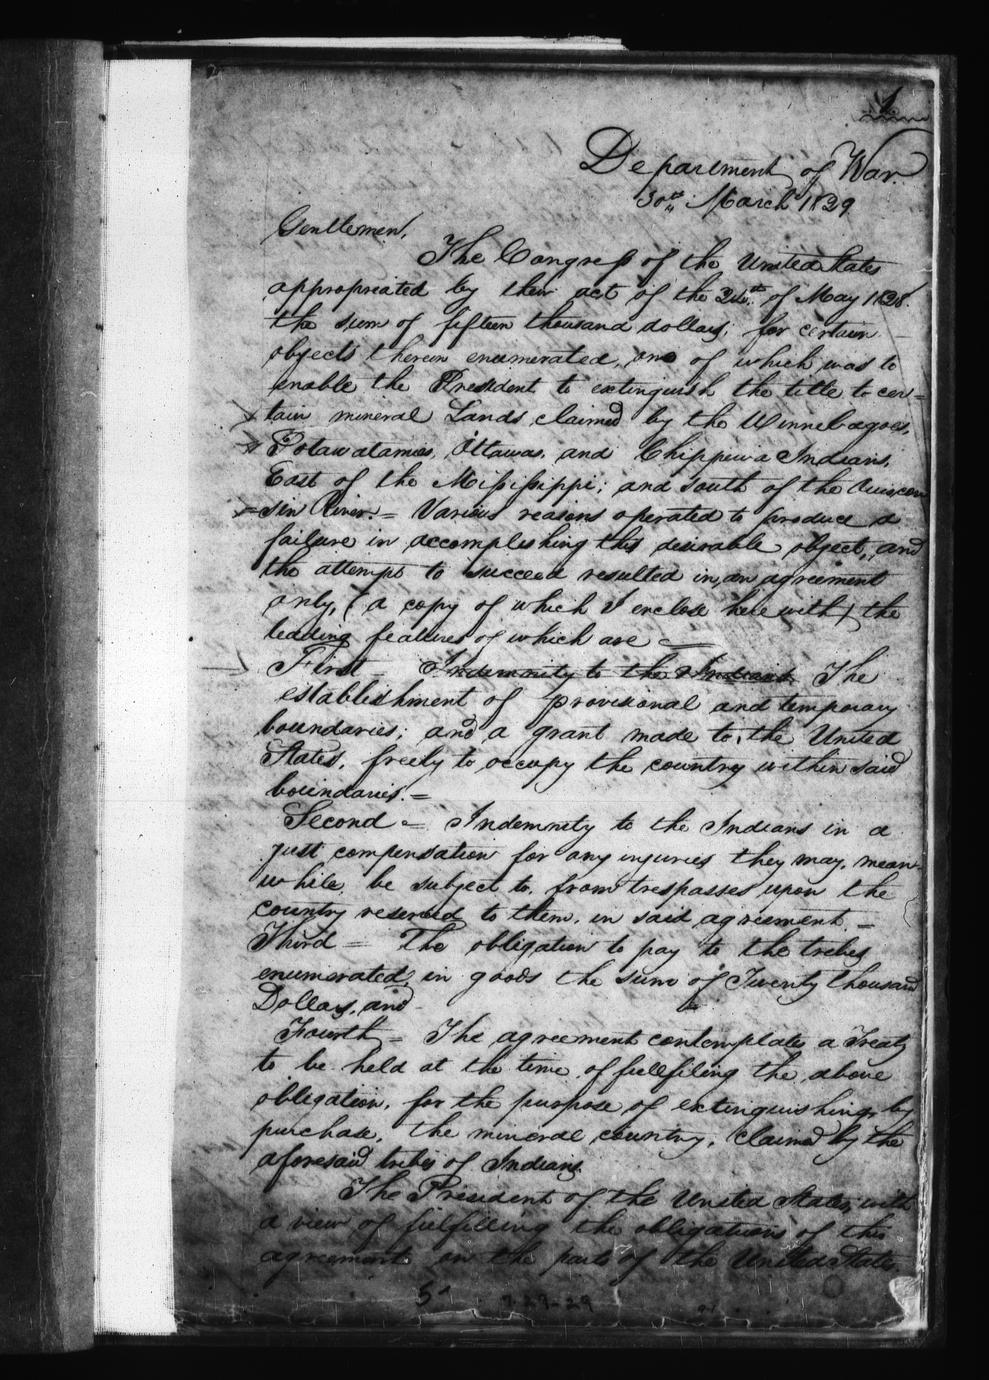 1
Department of War.
30th March 1829
Gentlemen,
The Congress of the United States
appropriated by their act of the 24th of May 1828.
the sum of fifteen thousand dollars; for certain
objects therein enumerated, one of which was to
enable the President to extinguish the title to cer=
tain mineral Lands claimed by the Winnebagoes,
Potawatamies, Ottawas, and Chippewa Indians,
East of the Missisippi; and South of the Ouiscon
=sin River. = Various reasons operated to produce a
failure in accomplishing this desirable object, and
the attempt to succeed resulted in an agreement
only, (a copy of which I enclose herewith) the
leading features of which are =
First - Indemnity to the Indians. The
establishment of provisional and temporary
boundaries; and a grant made to the United
States, freely to occupy the country within said
boundaries. =
Second = Indemnity to the Indians in a
just compensation for any injuries they may, mean-
while, be subject to, from trespasses upon the
country reserved to them, in said agreement. =
Third = The obligation to pay to the tribes
enumerated, in goods the sum of Twenty thousand
Dollars, and
Fourth = The agreement contemplates a Treaty
to be held at the time of fullfiling the above
obligation, for the purpose of extinguishing by
purchase, the mineral country, claimed by the
aforesaid tribes of Indians.
The President of the United States, with
a view of fulfilling the obligations of this
agreement on the part of the United States,
7-29-29